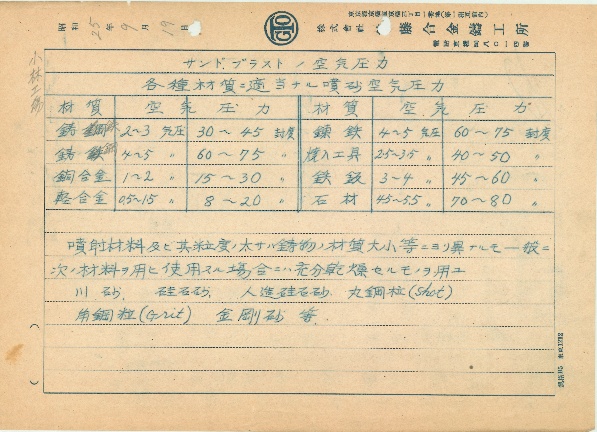 昭和 25年 9月 19日
株式会社 藤合金鋳工所
小林工場
サンドブラストノ空気圧力
各種材質ニ適当ナル噴砂空気圧力
材質 空気圧力 材質 空気圧力
鋳鉄 2～3 気圧 30～45 封度 鍛鉄 4～5 気圧 60～75 封度
鋳鋼 4～5 〃 60～75 〃 焼入工具 2.5~3.5 〃 40～50 〃
銅合金 1～2 〃 15～30 〃 鉄鈑 3～4 〃 45～60 〃
軽合金 0.5~1.5 〃 8～20 〃 石材 4.5~5.5 〃 70～80 〃
噴射材料及ビ其粒度ノ大サハ鋳物ノ材質大小等ニヨリ異ナルモ一般ニ
次ノ材料ヲ用ヒ使用スル場合ニハ充分乾燥セルモノヲ用ユ
川砂、 硅石砂、 人造硅石砂 丸鋼粒(Shot)
角鋼粒(Grit) 金剛砂 等、